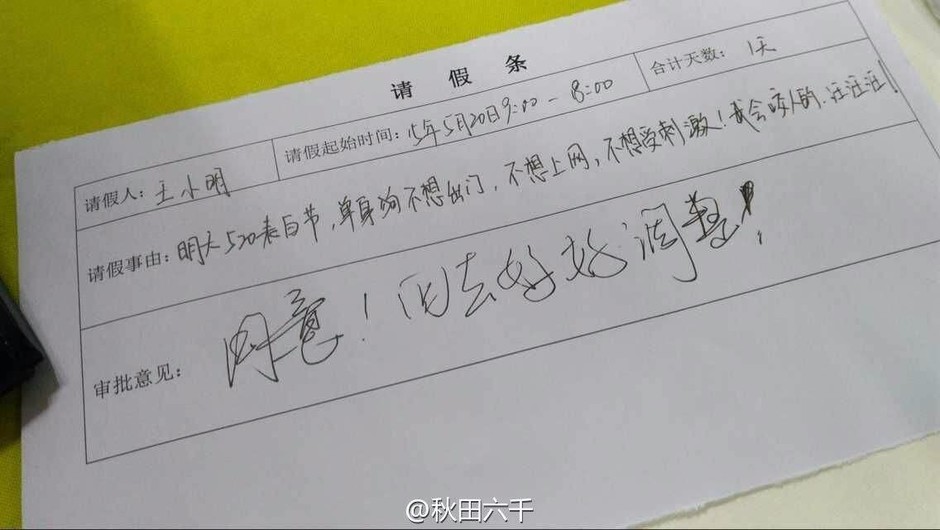 请 假 条
请假人：王小明 请假起始时间：15年5月20日9:00－8:00 合计天数：1天
请假事由：明天520表白节，单身狗不想出门，不想上网，不想受刺激！我会咬人的，汪汪汪！
审批意见：同意！回去好好调整！
@秋田六千